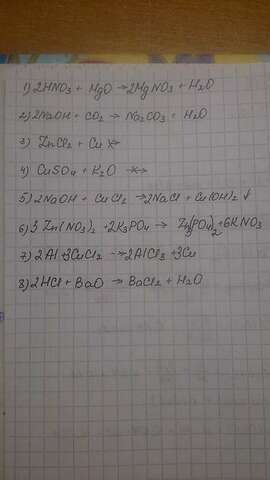 1) 2HNO₃ + MgO → 2MgNO₃ + H₂O
2) 2NaOH + CO₂ → Na₂CO₃ + H₂O
3) ZnCl₂ + Cu ↛
4) CuSO₄ + K₂O ↛
5) 2NaOH + CuCl₂ → 2NaCl + Cu(OH)₂ ↓
6) 3Zn(NO₃)₂ + 2K₃PO₄ → Zn₃(PO₄)₂ + 6KNO₃
7) 2Al + 3CuCl₂ → 2AlCl₃ + 3Cu
8) 2HCl + BaO → BaCl₂ + H₂O